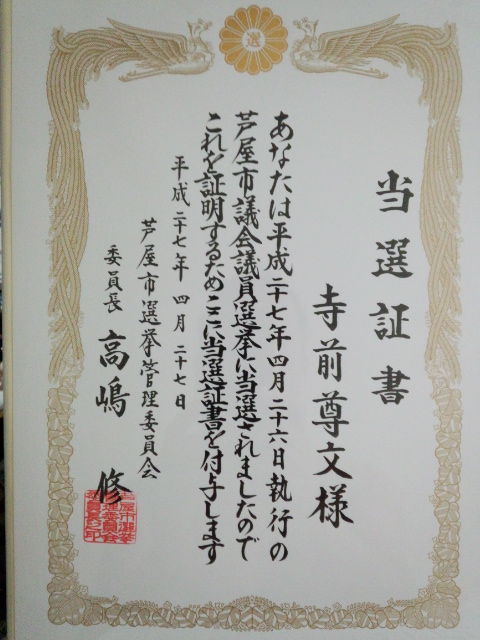 選
当選証書
寺前尊文様
あなたは平成二十七年四月二十六日執行の
芦屋市議会議員選挙に当選されましたので
これを証明するためここに当選証書を付与します
平成二十七年四月二十七日
芦屋市選挙管理委員会
委員長 高嶋 修